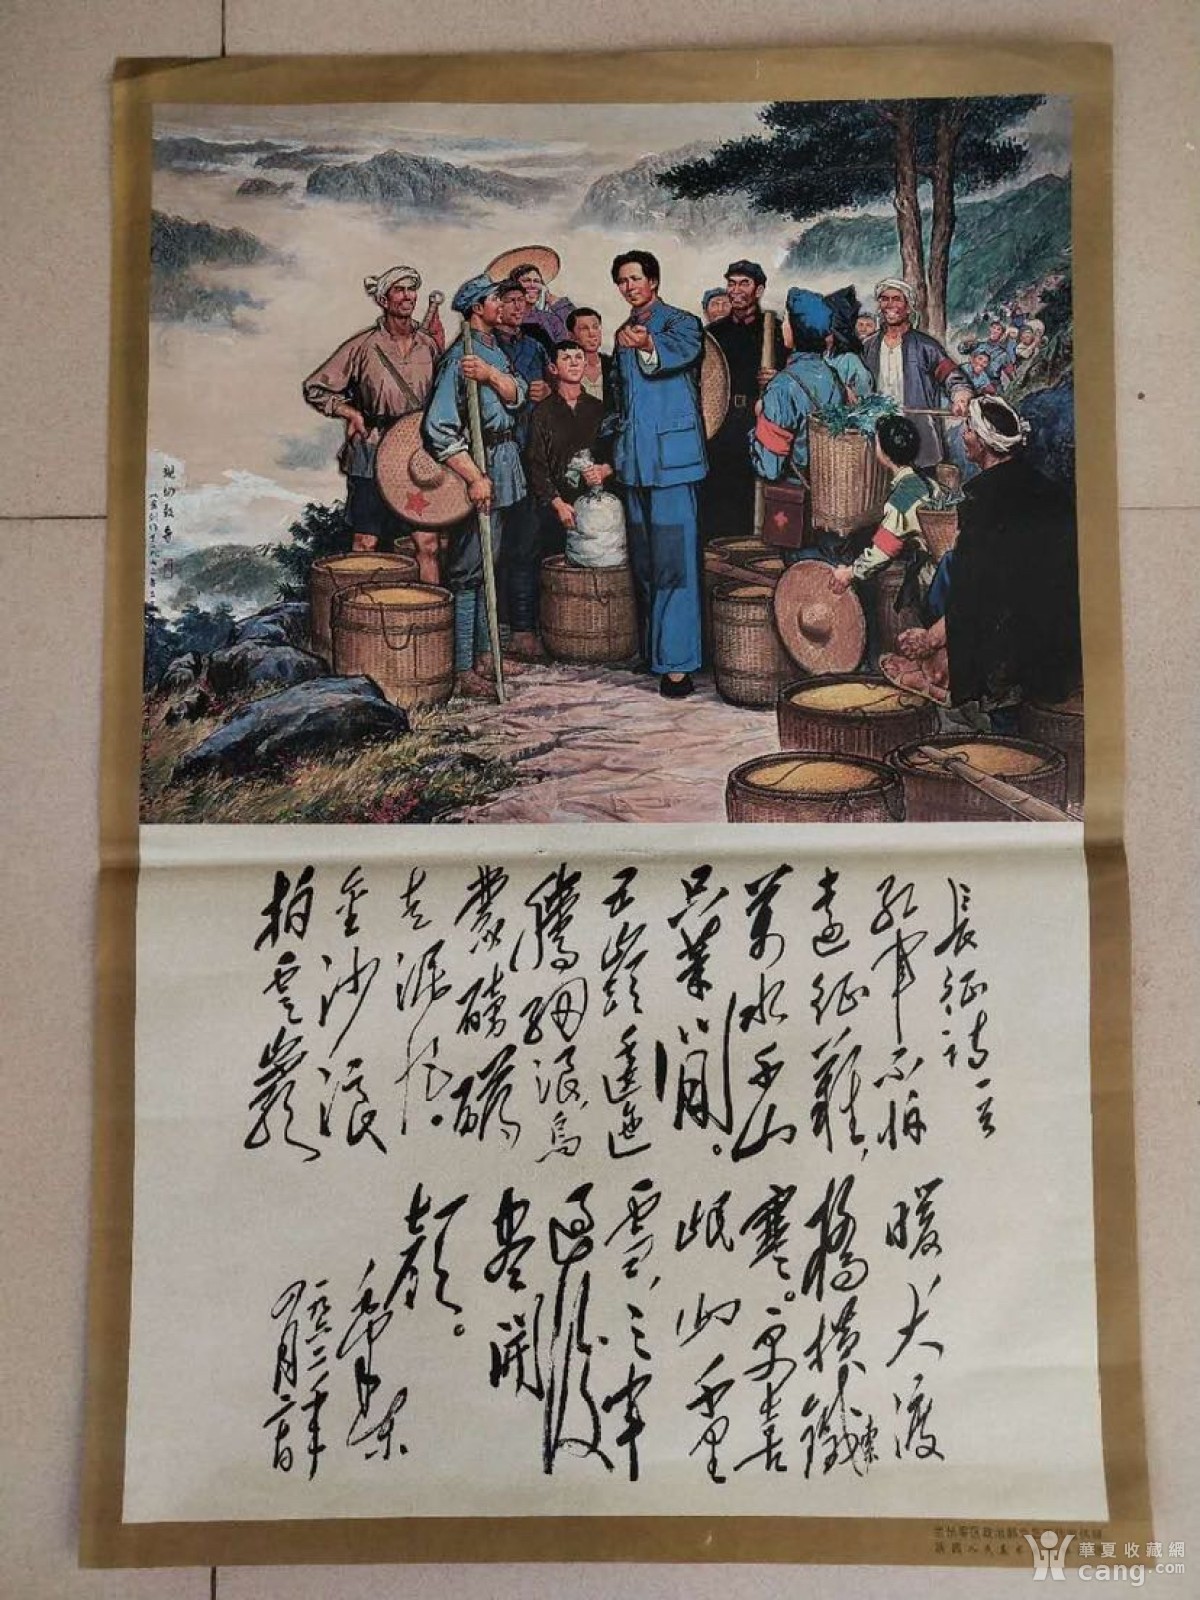 長征詩一首
紅軍不怕
遠征難，
萬水千山
只等閒。
五嶺逶迤
騰細浪，烏
蒙磅礴
走泥丸。
金沙浪
拍雲巖
暖大渡
橋橫鐵索
寒。更喜
岷山千里
雪，三軍
過後
盡開
顏。
毛澤東
一九六二年
華夏收藏網
cang.com